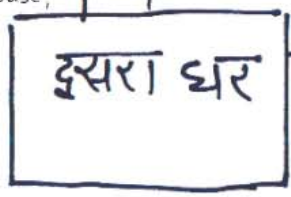 दूसरा घर